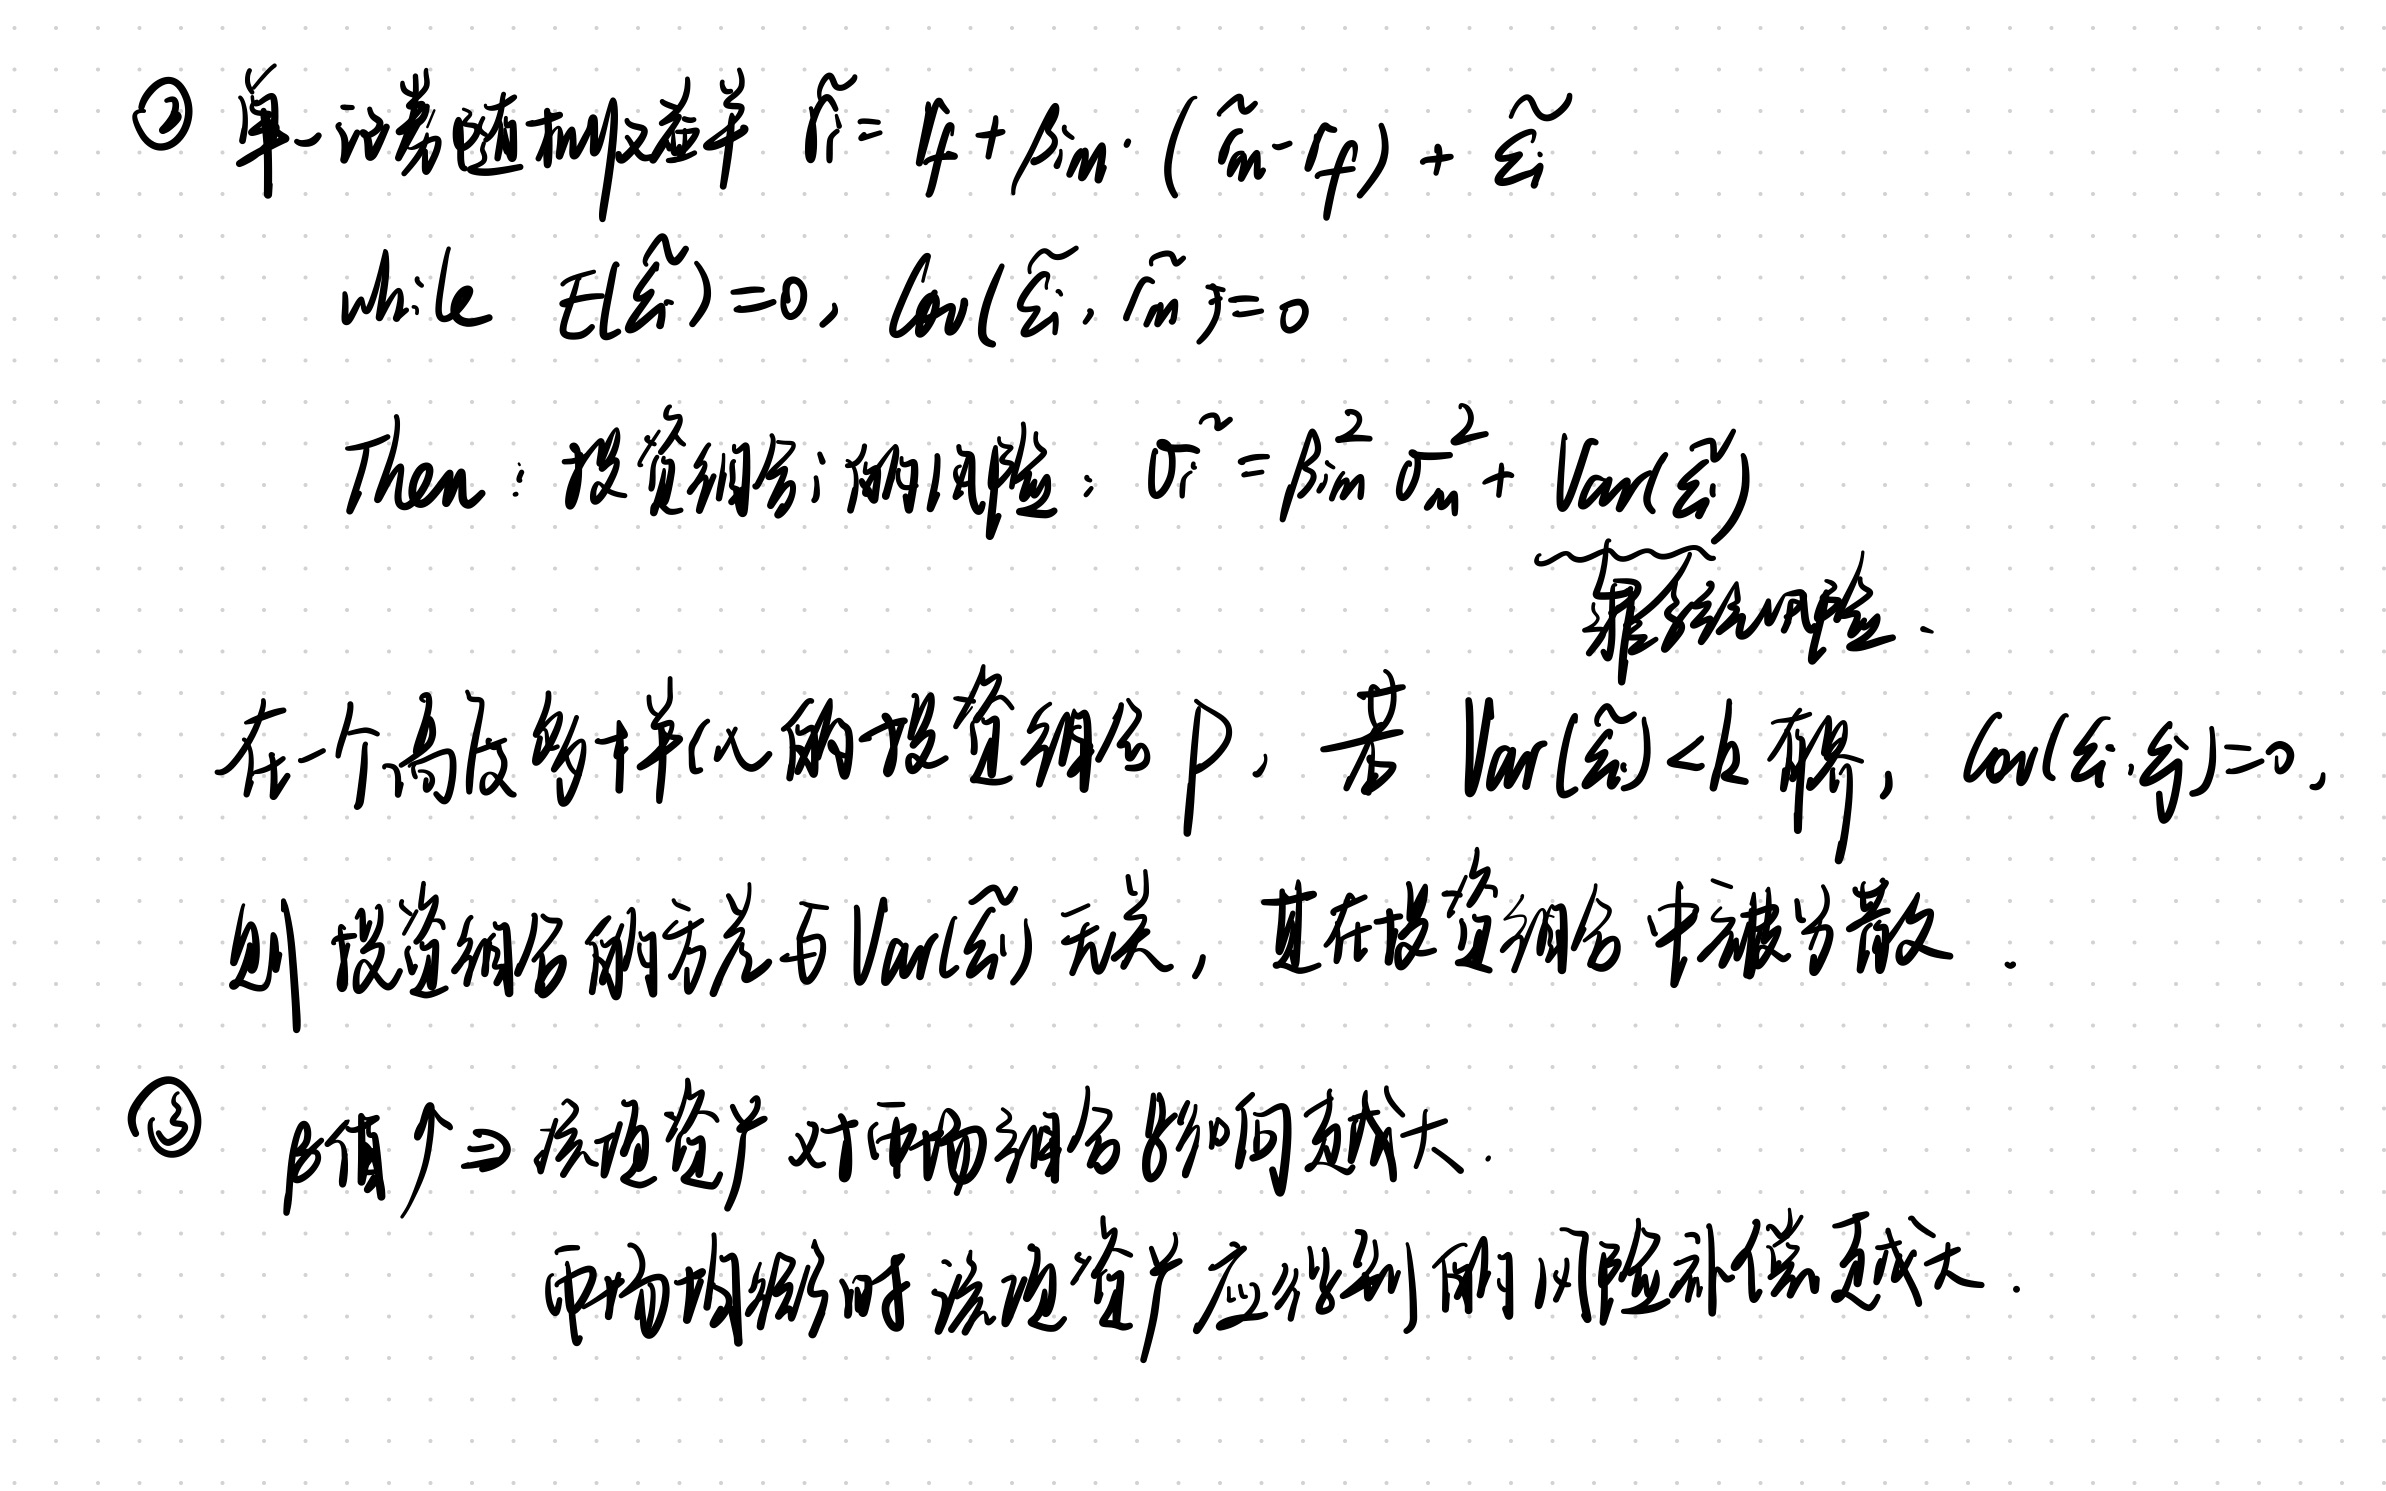 ② 单一证券 r̃i = rf + βim · (r̃m - rf) + ε̃i
while E(ε̃i) = 0, Cov(ε̃i, r̃m) = 0
Then: 投资组合i的风险: σi² = βim² σm² + Var(ε̃i)
非系统风险.
在一个高度多样化的投资组合 p, 若 Var(ε̃i) < h 有界, Cov(εi, εj) = 0,
则投资组合的方差与 Var(ε̃i) 无关, 其在投资组合中被分散.
③ β值↑ ⇒ 该资产对市场组合的影响越大.
市场均衡时该资产应得到的风险补偿越大.